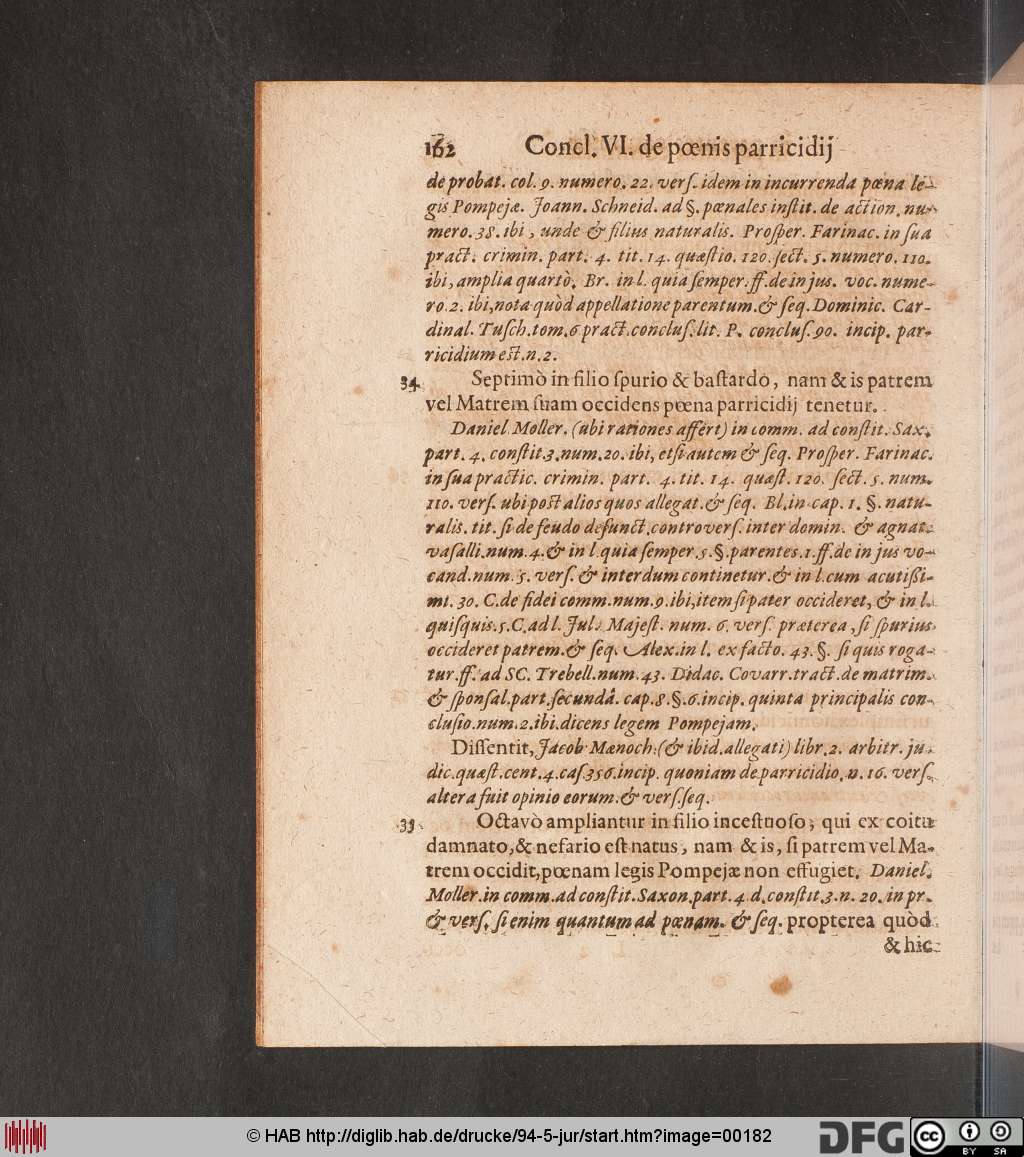 162 Concl. VI. de pœnis parricidij
de probat. col. 9. numero. 22. verſ. idem in incurrenda pœna le-
gis Pompejæ. Joann. Schneid. ad §. pœnales inſtit. de action. nu-
mero. 38. ibi, unde & filius naturalis. Proſper. Farinac. in ſua
pract. crimin. part. 4. tit. 14. quæſtio. 120. ſect. 5. numero. 110.
ibi, amplia quartò. Br. in l. quia ſemper. ff. de in jus. voc. nume-
ro 2. ibi, nota quòd appellatione parentum. & ſeq. Dominic. Car-
dinal. Tuſch. tom. 6 pract. concluſ. lit. P. concluſ. 90. incip. par-
ricidium eſt. n. 2.
34 Septimò in filio ſpurio & baſtardo, nam & is patrem
vel Matrem ſuam occidens pœna parricidij tenetur.
Daniel Moller. (ubi rationes affert) in comm. ad conſtit. Sax.
part. 4. conſtit. 3. num. 20. ibi, etſi autem & ſeq. Proſper. Farinac.
in ſua practic. crimin. part. 4. tit. 14. quæſt. 120. ſect. 5. num.
110. verſ. ubi poſt alios quos allegat. & ſeq. Bl. in cap. 1. §. natu-
ralis. tit. ſi de feudo defunct. controverſ. inter domin. & agnat.
vaſalli. num. 4. & in l. quia ſemper. 5. §. parentes. 1. ff. de in jus vo-
cand. num. 5. verſ. & interdum continetur. & in l. cum acutißi-
mi. 30. C. de fidei comm. num. 9. ibi, item ſi pater occideret, & in l.
quiſquis. 5. C. ad l. Jul. Majeſt. num. 6. verſ. præterea, ſi ſpurius
occideret patrem. & ſeq. Alex. in l. ex facto. 43. §. ſi quis roga-
tur. ff. ad SC. Trebell. num. 43. Didac. Covarr. tract. de matrim.
& ſponſal. part. ſecundâ. cap. 8. §. 6. incip. quinta principalis con-
cluſio. num. 2. ibi. dicens legem Pompejam.
Diſſentit, Jacob Mænoch. (& ibid. allegati) libr. 2. arbitr. ju-
dic. quæſt. cent. 4. caſ 356. incip. quoniam de parricidio. n. 16. verſ.
altera fuit opinio eorum. & verſ. ſeq.
33 Octavò ampliantur in filio inceſtuoſo, qui ex coitu
damnato, & nefario eſt natus, nam & is, ſi patrem vel Ma-
trem occidit, pœnam legis Pompejæ non effugiet. Daniel.
Moller. in comm. ad conſtit. Saxon. part. 4. d. conſtit. 3. n. 20. in pr.
& verſ. ſi enim quantum ad pœnam. & ſeq. propterea quòd
& hic
© HAB http://diglib.hab.de/drucke/94-5-jur/start.htm?image=00182
DFG cc BY SA